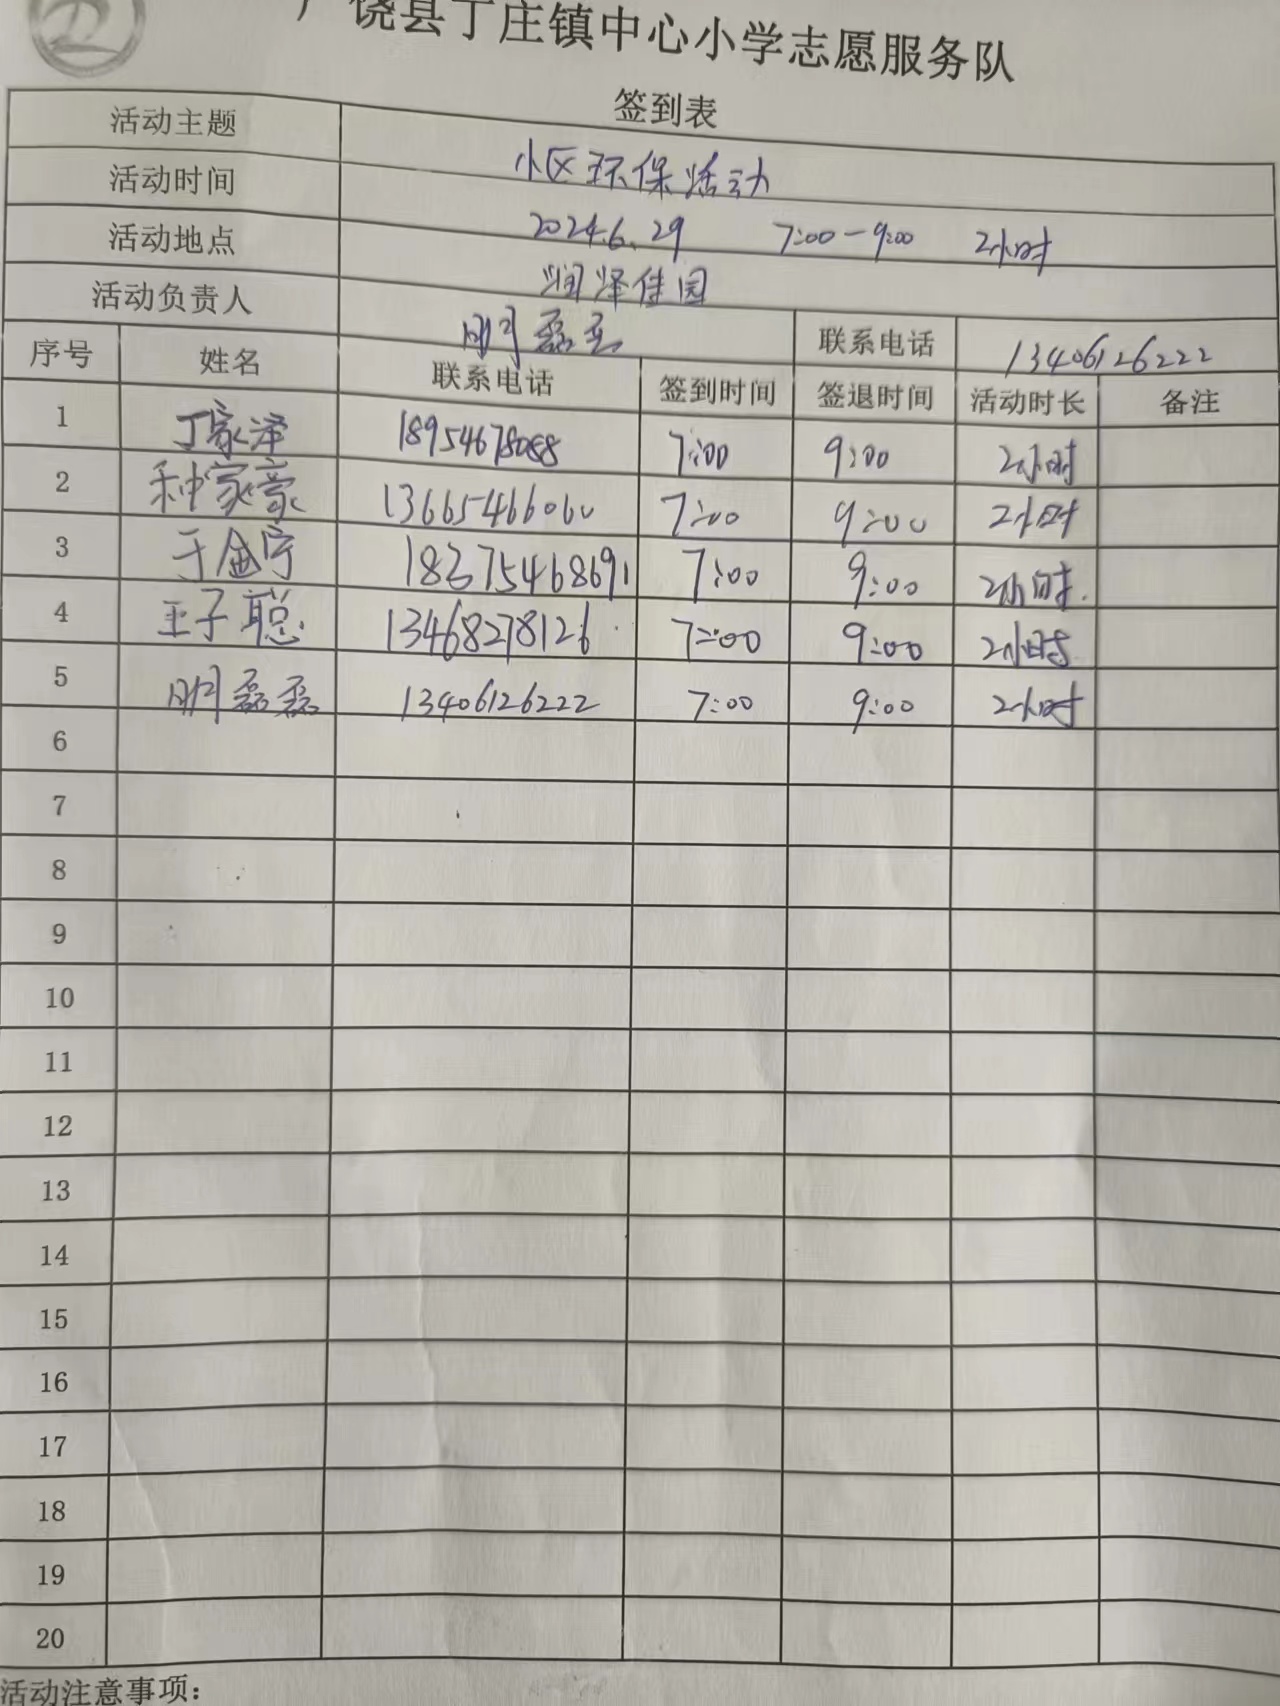 广饶县丁庄镇中心小学志愿服务队
签到表
活动主题 小区环保活动
活动时间 2024.6.29 7:00-9:00 2小时
活动地点 润泽佳园
活动负责人 明磊磊 联系电话 13406126222
序号 姓名 联系电话 签到时间 签退时间 活动时长 备注
1 丁家泽 18954678088 7:00 9:00 2小时
2 种家豪 13665466060 7:00 9:00 2小时
3 于金宁 18375468691 7:00 9:00 2小时.
4 王子聪 13468278126 7:00 9:00 2小时
5 明磊磊 13406126222 7:00 9:00 2小时
6
7
8
9
10
11
12
13
14
15
16
17
18
19
20
活动注意事项：